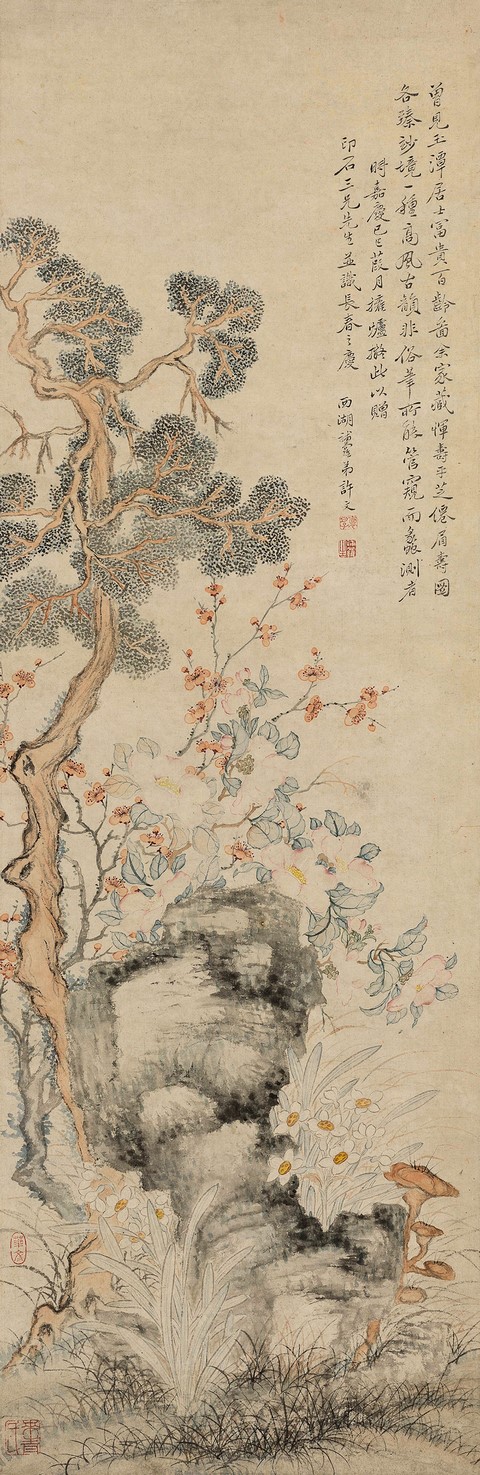 曾見玉潭居士富貴百齡圖余家藏惲壽平芝僊眉壽圖
各臻玅境一種高風古韻非俗筆所能管窺而蠡測者
時嘉慶己巳葭月擁爐擬此以贈
印石三兄先生並識長春之慶
西湖弟許文